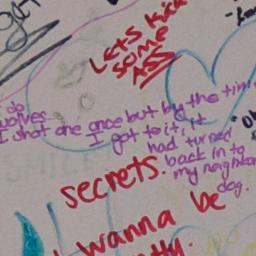 LETS KICK
SOME
ASS
do
wolves
I shot one once but by the time
I got to it, it
had turned
back in to
my neighbors
dog.
secrets.
wanna be